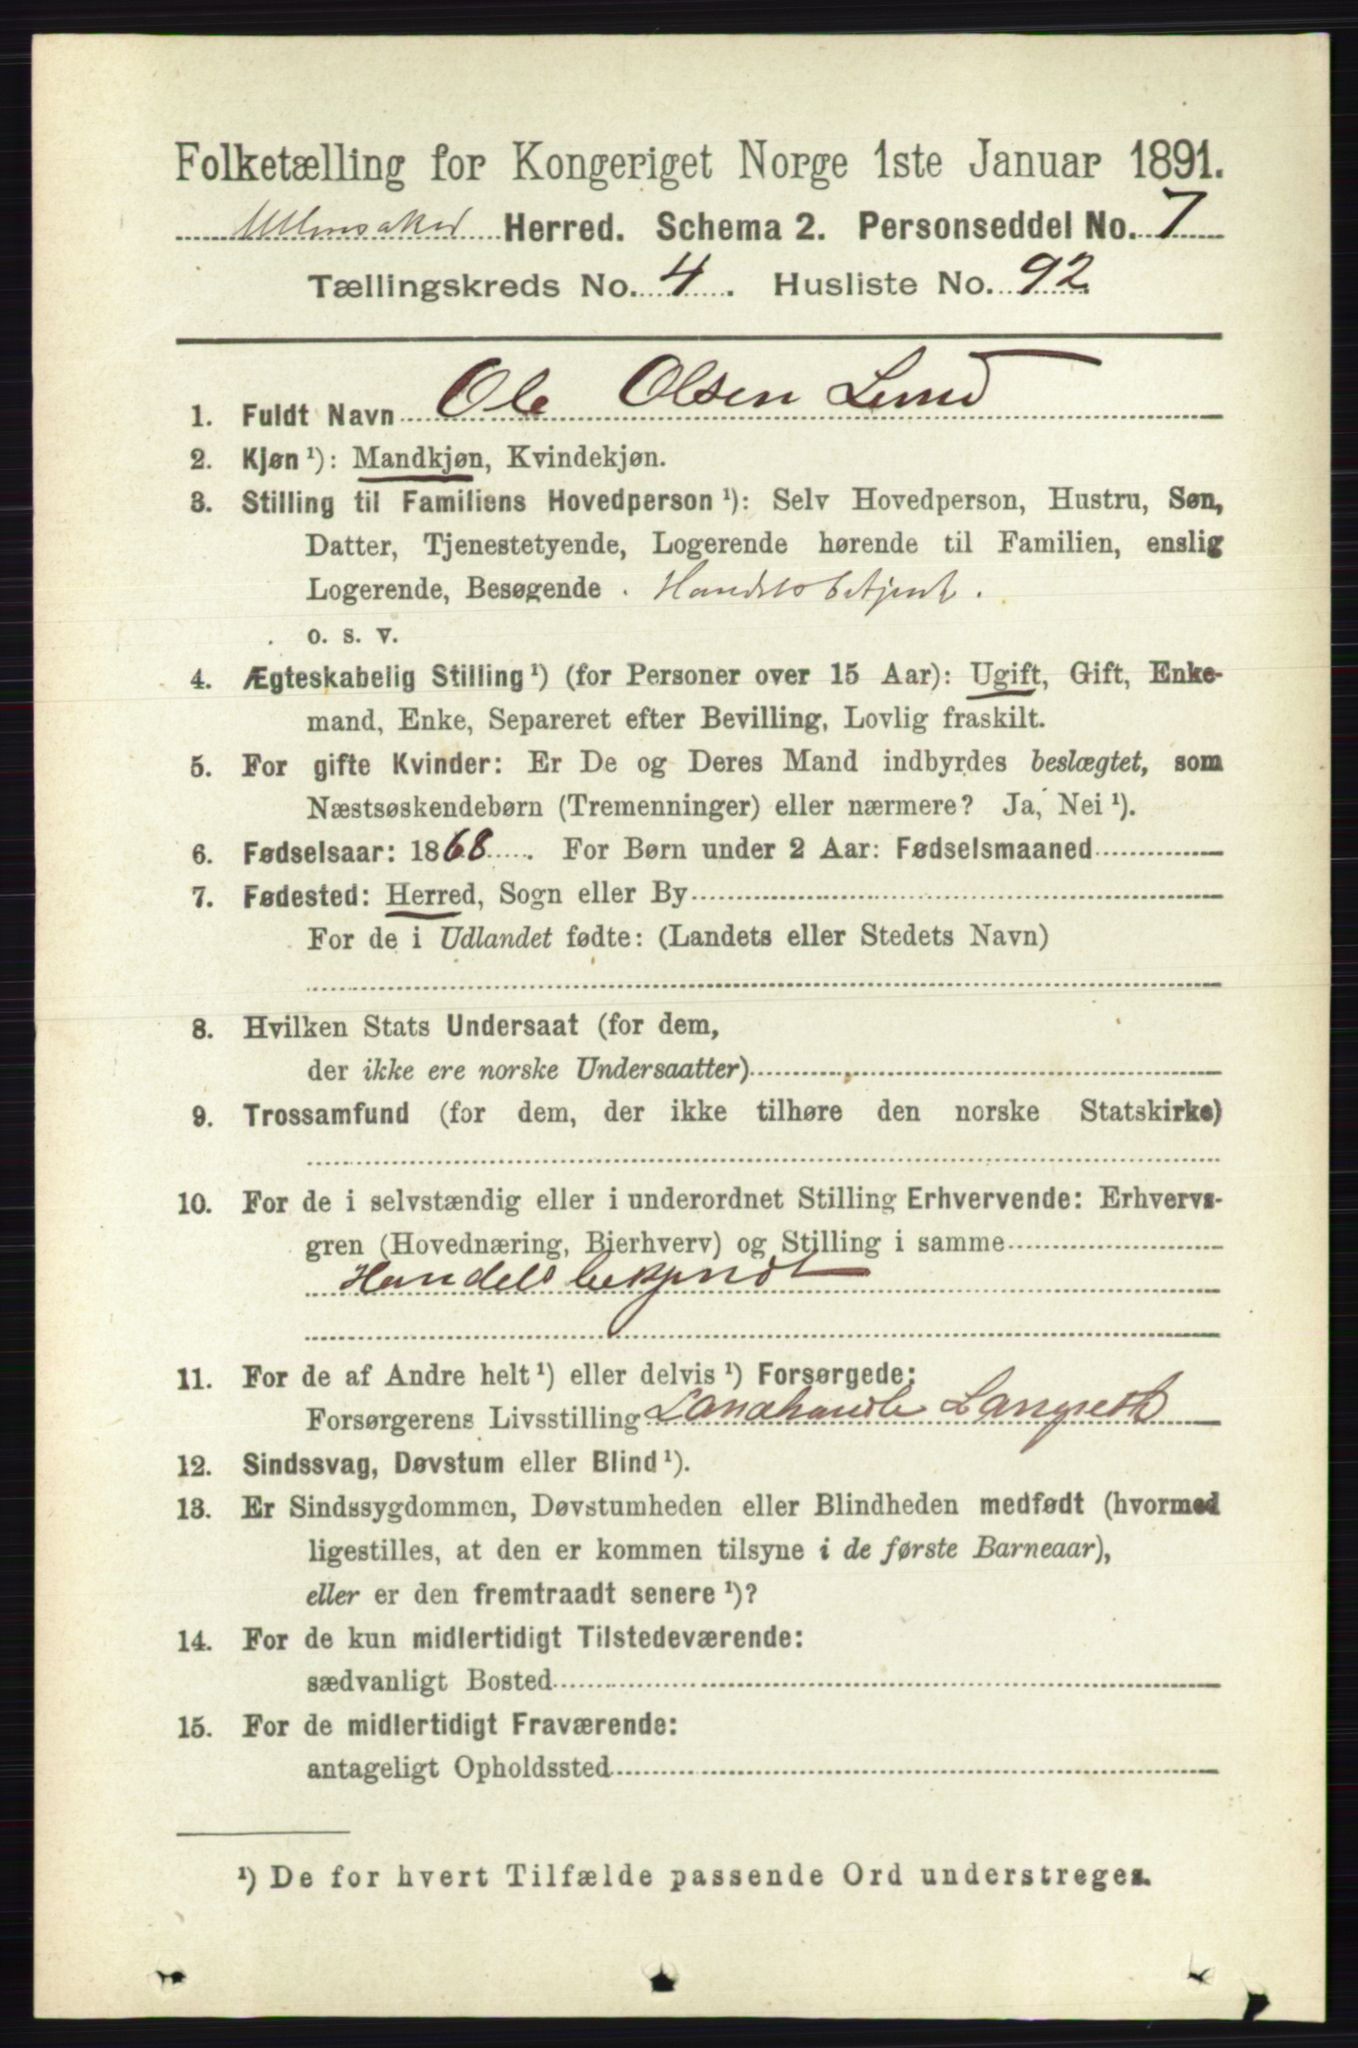 Folketælling for Kongeriget Norge 1ste Januar 1891.
Ullensaker Herred. Schema 2. Personseddel No. 7
Tællingskreds No. 4. Husliste No. 92
1. Fuldt Navn Ole Olsen Lund
2. Kjøn¹): Mandkjøn, Kvindekjøn.
3. Stilling til Familiens Hovedperson¹): Selv Hovedperson, Hustru, Søn,
Datter, Tjenestetyende, Logerende hørende til Familien, enslig
Logerende, Besøgende . Handelsbetjent.
o. s. v.
4. Ægteskabelig Stilling¹) (for Personer over 15 Aar): Ugift, Gift, Enke-
mand, Enke, Separeret efter Bevilling, Lovlig fraskilt.
5. For gifte Kvinder: Er De og Deres Mand indbyrdes beslægtet, som
Næstsøskendebørn (Tremenninger) eller nærmere? Ja, Nei¹).
6. Fødselsaar: 1868. For Børn under 2 Aar: Fødselsmaaned
7. Fødested: Herred, Sogn eller By
For de i Udlandet fødte: (Landets eller Stedets Navn)
8. Hvilken Stats Undersaat (for dem,
der ikke ere norske Undersaatter)
9. Trossamfund (for dem, der ikke tilhøre den norske Statskirke)
10. For de i selvstændig eller i underordnet Stilling Erhvervende: Erhvervs-
gren (Hovednæring, Bierhverv) og Stilling i samme
Handelsbetjendt
11. For de af Andre helt¹) eller delvis¹) Forsørgede:
Forsørgerens Livsstilling Landhandle
12. Sindssvag, Døvstum eller Blind¹).
13. Er Sindssygdommen, Døvstumheden eller Blindheden medfødt (hvormed
ligestilles, at den er kommen tilsyne i de første Barneaar),
eller er den fremtraadt senere¹)?
14. For de kun midlertidigt Tilstedeværende:
sædvanligt Bosted
15. For de midlertidigt Fraværende:
antageligt Opholdssted
¹) De for hvert Tilfælde passende Ord understreges.